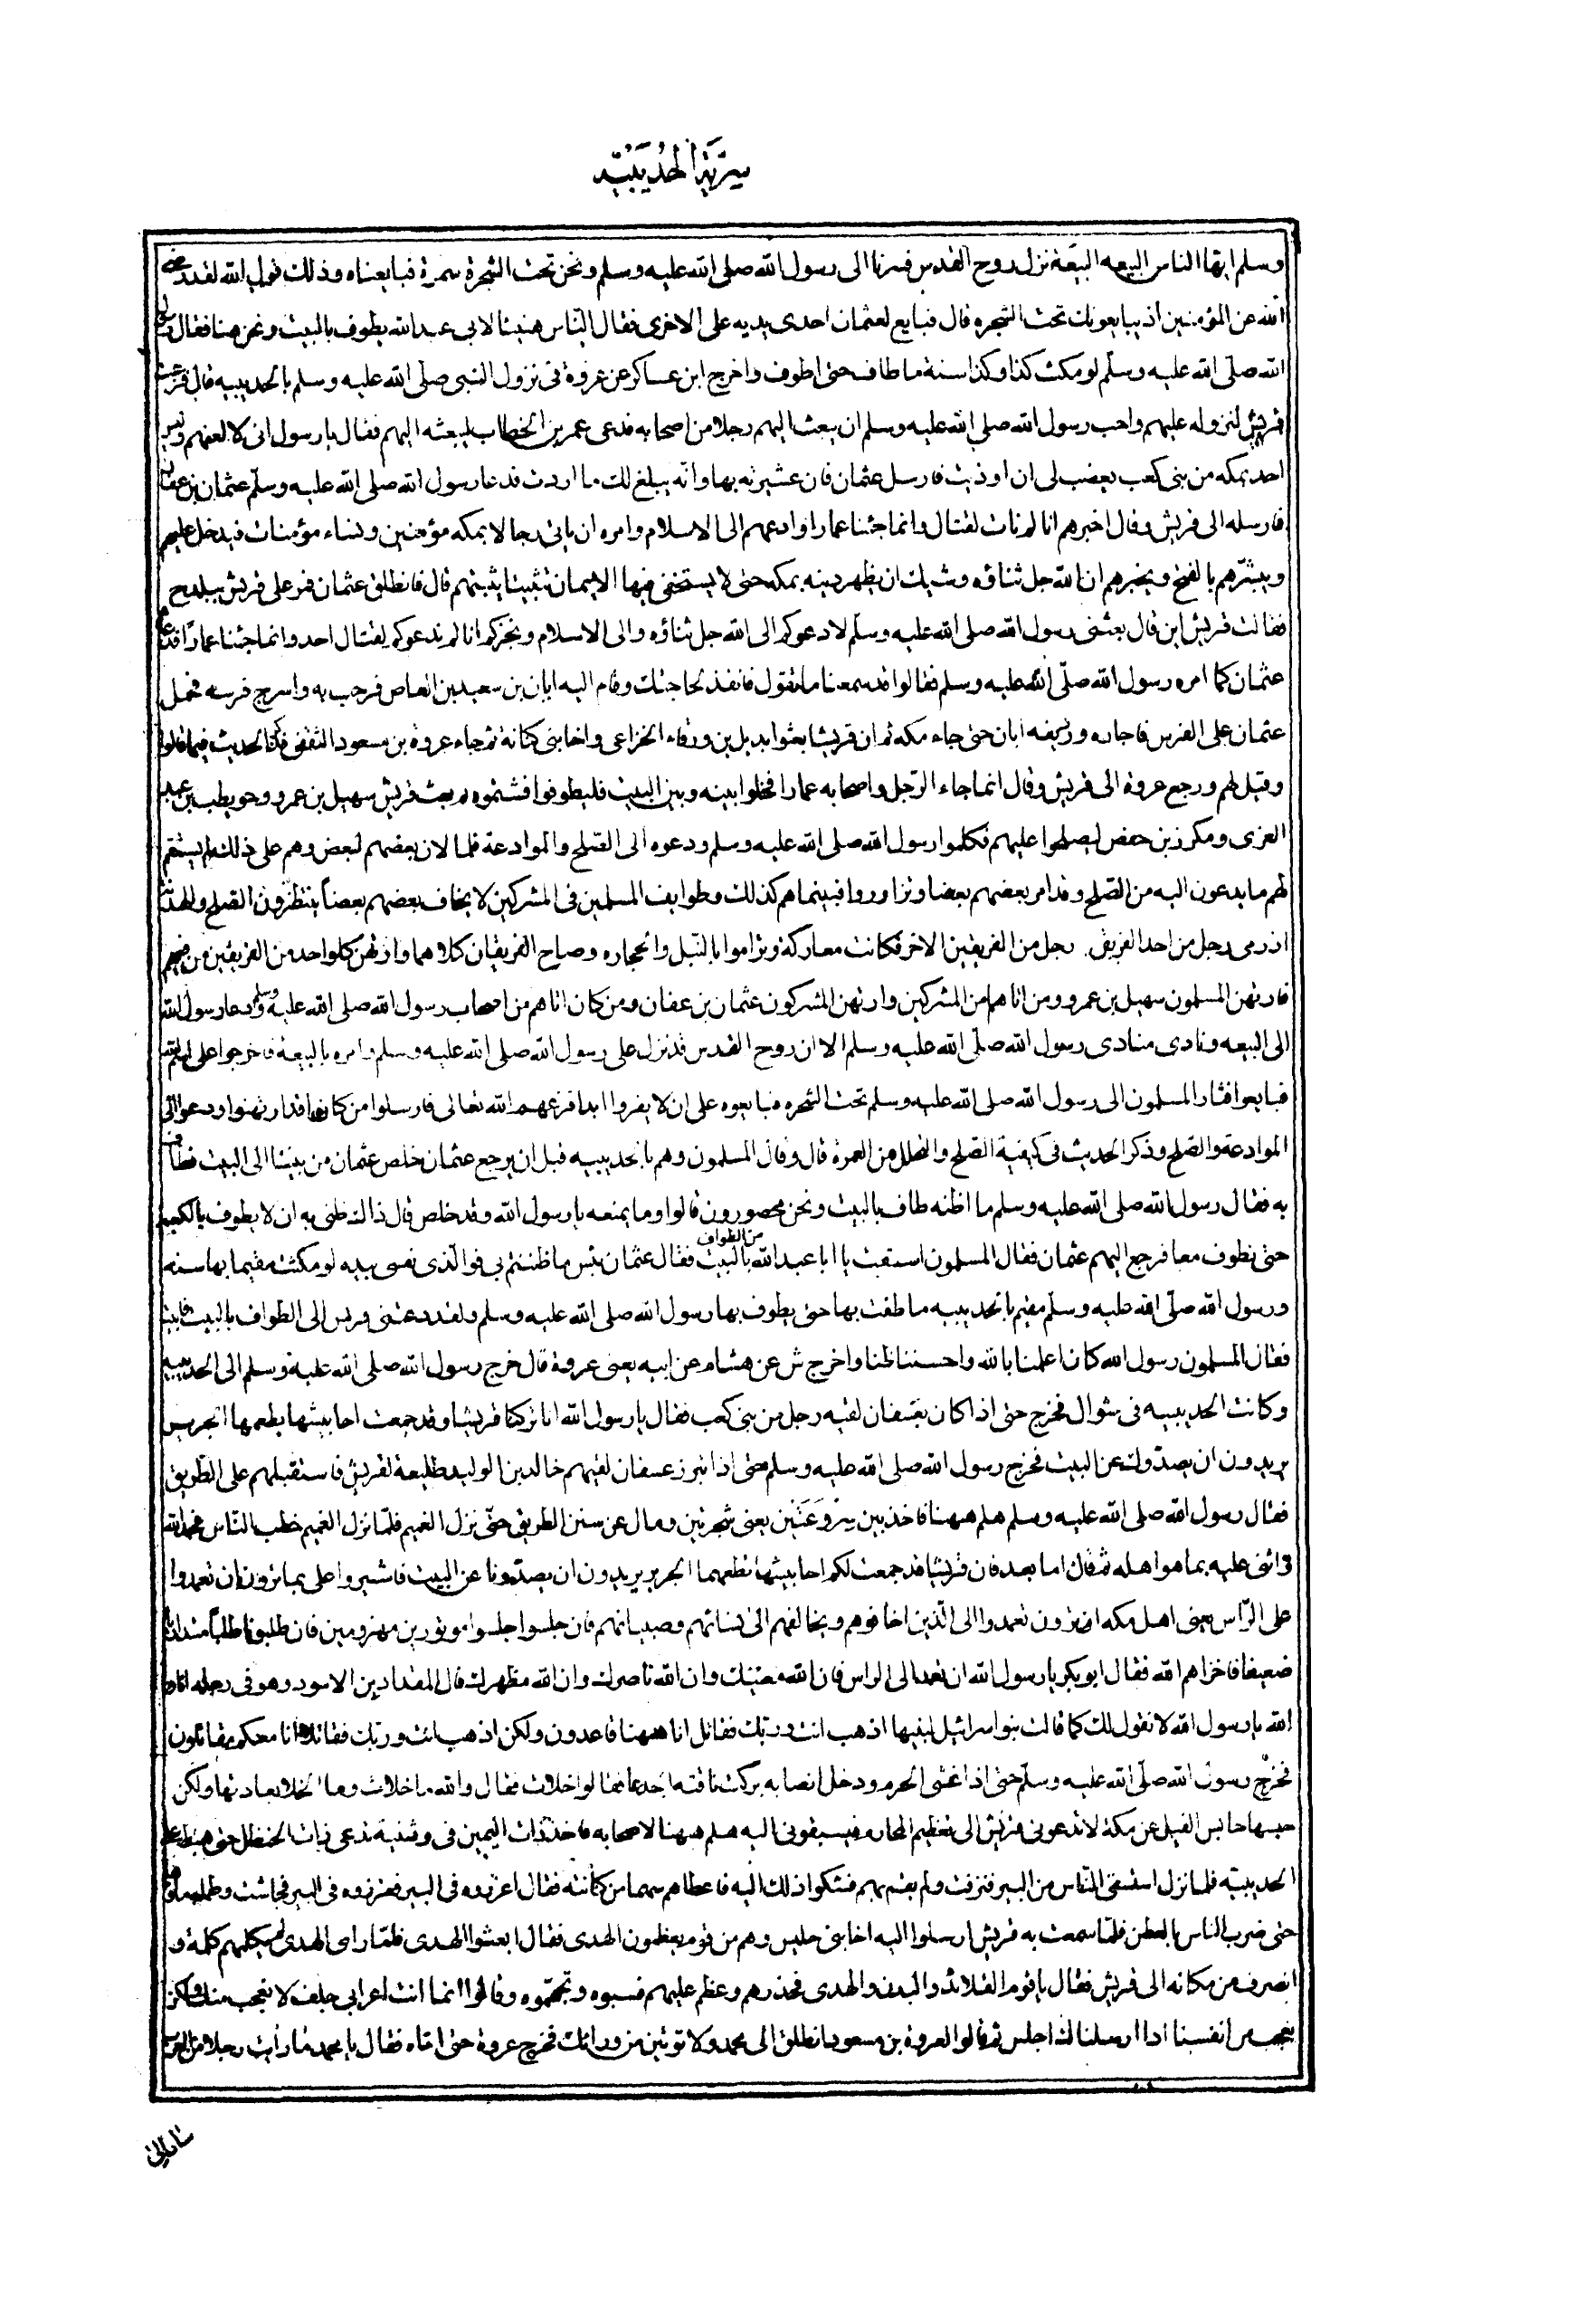 سرية الحديبية
وسلم ايها الناس البيعه البيعة نزل روح القدس فسرنا الى رسول الله صلى الله عليه وسلم ونحن تحت الشجرة سمرة فبايعناه وذلك قول الله لقد رضى
الله عن المؤمنين اذ يبايعونك تحت الشجره قال فبايع لعثمان احدى يديه على الاخرى فقال الناس هنيئا لابى عبد الله يطوف بالبيت ونحن هنا فقال رسول
الله صلى الله عليه وسلم لو مكث كذا وكذا سنة ما طاف حتى اطوف واخرج ابن عساكر عن عروة فى نزول النبى صلى الله عليه وسلم بالحديبيه قال فزعت
قريش لنزوله عليهم واحب رسول الله صلى الله عليه وسلم ان يبعث اليهم رجلا من اصحابه فدعى عمر بن الخطاب ليبعثه اليهم فقال يا رسول انى لا العنهم وليس
احد بمكه من بنى كعب يغضب لى ان اوذيت فارسل عثمان فان عشيرته بها وانه يبلغ لك ما اردت فدعا رسول الله صلى الله عليه وسلم عثمان بن عفان
فارسله الى قريش وقال اخبرهم انا لم نات لقتال وانما جئنا عمارا وادعهم الى الاسلام وامره ان ياتى رجالا بمكه مؤمنين ونساء مؤمنات فيدخل عليهم
ويبشرهم بالفتح ويخبرهم ان الله جل ثناؤه وشيك ان يظهر دينه بمكه حتى لا يستخفى فيها الايمان تثبيتا يثبتهم قال فانطلق عثمان فمر على قريش ببلدح
فقالت قريش اين قال بعثنى رسول الله صلى الله عليه وسلم لادعوكم الى الله جل ثناؤه والى الاسلام ونخبركم انا لم ندعوكم لقتال احد وانما جئنا عمارا فدعاهم
عثمان كما امره رسول الله صلى الله عليه وسلم فقالوا قد سمعنا ما تقول فانفذ لحاجتك وقام اليه ابان بن سعيد بن العاص فرحب به واسرج فرسه فحمل
عثمان على الفرس فاجاره وردفه ابان حتى جاء مكه ثم ان قريشا بعثوا بديل بن ورقاء الخزاعى واخا بنى كنانة ثم جاء عروة بن مسعود الثقفى فذكر الحديث فيما قالوا
وقيل لهم ورجع عروة الى قريش وقال انما جاء الرجل واصحابه عمارا فخلوا بينه وبين البيت فليطوفوا فشتموه ثم بعث قريش سهيل بن عمرو وحويطب بن عبد
العزى ومكرز بن حفص ليصلحوا عليهم فكلموا رسول الله صلى الله عليه وسلم ودعوه الى الصلح والموادعة فلما لان بعضهم لبعض وهم على ذلك لم يستقم
لهم ما يدعون اليه من الصلح وقد امن بعضهم بعضا وتزاوروا فبينما هم كذلك وطوايف المسلمين فى المشركين لا يخاف بعضهم بعضا ينتظرون الصلح والهدنة
اذ رمى رجل من احد الفريقين رجل من الفريقين الاخر فكانت معاركة وتراموا بالنبل والحجاره وصاح الفريقان كلاهما وارتهن كلواحد من الفريقين من فيهم
فارتهن المسلمون سهيل بن عمرو ومن اتاهم من المشركين وارتهن المشركون عثمان بن عفان ومن كان اتاهم من اصحاب رسول الله صلى الله عليه وسلم ودعا رسول الله
الى البيعه ونادى منادى رسول الله صلى الله عليه وسلم الا ان روح القدس قد نزل على رسول الله صلى الله عليه وسلم وامره بالبيعة فاخرجوا على اسم الله
فبايعوا فثار المسلمون الى رسول الله صلى الله عليه وسلم تحت الشجره فبايعوه على ان لا يفروا ابدا فرعبهم الله تعالى فارسلوا من كانوا قد ارتهنوا ودعوا الى
الموادعة والصلح وذكر الحديث فى كيفية الصلح والتحلل من العمرة قال وقال المسلمون وهم بالحديبيه قبل ان يرجع عثمان خلص عثمان من بيننا الى البيت فطاف
به فقال رسول الله صلى الله عليه وسلم ما اظنه طاف بالبيت ونحن محصورون قالوا وما يمنعه يا رسول الله وقد خلص قال ذالك ظنى به ان لا يطوف بالكعبه
حتى نطوف معا فرجع اليهم عثمان فقال المسلمون استفيت يا ابا عبد الله من الطواف بالبيت فقال عثمان بئس ما ظننتم بى فوالذى نفسى بيده لو مكثت مقيما بها سنه
ورسول الله صلى الله عليه وسلم مقيم بالحديبيه ما طفت بها حتى يطوف بها رسول الله صلى الله عليه وسلم ولقد دعتنى قريش الى الطواف بالبيت فابيت
فقال المسلمون رسول الله كان اعلمنا بالله واحسننا ظنا واخرج ش عن هشام عن ابيه يعنى عروة قال خرج رسول الله صلى الله عليه وسلم الى الحديبيه
وكانت الحديبيه فى شوال فخرج حتى اذا كان بعسفان لقيه رجل من بنى كعب فقال يا رسول الله انا تركنا قريشا وقد جمعت احابيشها يطعمها الخزيرة
يريدون ان يصدوك عن البيت فخرج رسول الله صلى الله عليه وسلم حتى اذا تبرز عسفان لقيهم خالد بن الوليد طليعة لقريش فاستقبلهم على الطريق
فقال رسول الله صلى الله عليه وسلم هلم ههنا فاخذ بين سروعتين يعنى شجرتين ومال عن سنن الطريق حتى نزل الغميم فلما نزل الغميم خطب الناس فحمد الله
واثنى عليه بما هو اهله ثم قال اما بعد فان قريشا قد جمعت لكم احابيشها تطعمها الخزير يريدون ان يصدونا عن البيت فاشيروا على بما ترون ان تعمدوا
على الراس يعنى اهل مكه ام ترون تعمدوا الى الذين اعانوهم ونخالفهم الى نسائهم وصبيانهم فان جلسوا جلسوا موتورين مهزومين فان طلبونا طلبا متداركا
ضعيفا فاخزاهم الله فقال ابو بكر يا رسول الله ان تعمد الى الراس فان الله معينك وان الله ناصرك وان الله مظهرك قال المقداد بن الاسود وهو فى رحله انا والله
الله يا رسول الله لا نقول لك كما قالت بنو اسرائيل لنبيها اذهب انت وربك فقاتلا انا ههنا قاعدون ولكن اذهب انت وربك فقاتلا انا معكم مقاتلون
فخرج رسول الله صلى الله عليه وسلم حتى اذا غشى الحرم ودخل انصابه بركت ناقته الجدعا فقالوا خلات فقال والله ما خلات وما الخلا بعادتها ولكن
حبسها حابس الفيل عن مكة لا تدعونى قريش الى تعظيم المحارم فيسبقونى اليه هلم ههنا لاصحابه فاخذ ذات اليمين فى ثنية تدعى ذات الحنظل حتى هبط على
الحديبية فلما نزل استقى الناس من البير فنزفت ولم يقم بهم فشكوا ذلك اليه فاعطاهم سهما من كنانته فقال اغرزوه فى البير فغرزوه فى البير فجاشت وطما ماؤها
حتى ضرب الناس بالعطن فلما سمعت به قريش ارسلوا اليه اخا بنى حليس وهم من قوم يعظمون الهدى فقال ابعثوا الهدى فلما راى الهدى لم يكلمهم كلمة و
انصرف من مكانه الى قريش فقال يا قوم القلائد والبدن والهدى فحذرهم وعظم عليهم فسبوه وتجهموه وقالوا انما انت اعرابى جلف لا نعجب منك ولكن
نعجب من انفسنا اذا ارسلناك اجلس ثم قالوا لعروة بن مسعود انطلق الى محمد ولا توتين من ورائك فخرج عروة حتى اتاه فقال يا محمد ما رايت رجلا من العرب